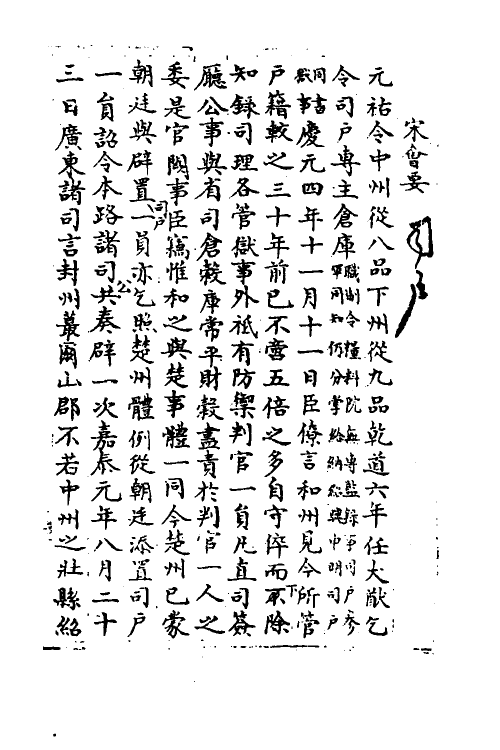 宋會要 司戶
元祐令中州從八品下州從九品乾道六年任犬猷乞
令司戶專主倉庫職制令糧料院無專監錄事司戶參
軍同知仍分掌給納
申明司戶
同書
獄事慶元四年十一月十一日臣僚言和州見今所管
戶籍較之三十年前已不啻五倍之多自守倅而下不除
知錄司理各管獄事外祗有防禦判官一員凡直司簽
廳公事與省司倉穀庫常平財穀盡責於判官一人之
委是官闕事臣竊惟和之與楚事體一同今楚州已蒙
朝廷與辟置司戶一員亦乞照楚州體例從朝廷添置司戶
一員詔令本路諸司公共奏辟一次嘉泰元年八月二十
三日廣東諸司言封州蕞爾山郡不若中州之壯縣紹